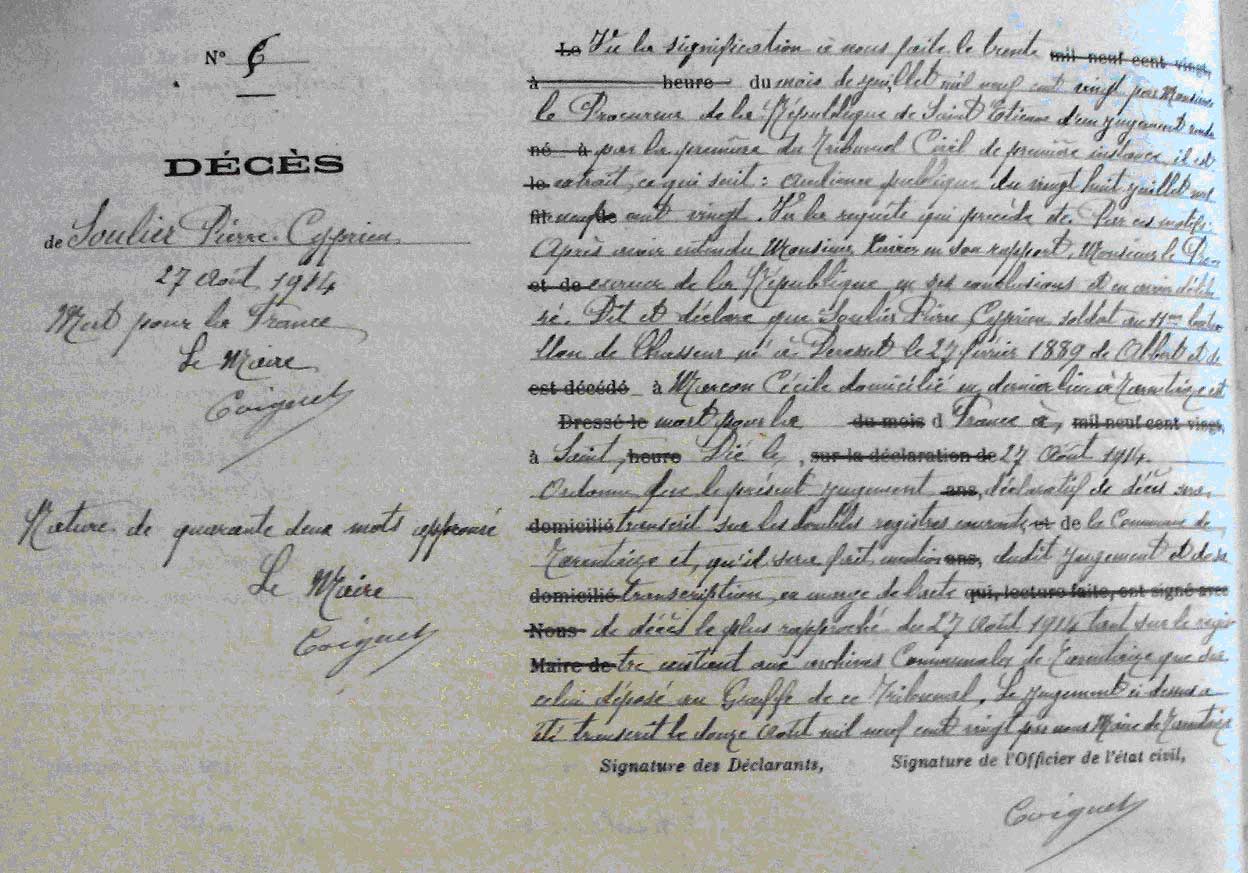 N° 6
DÉCÈS
de Soulier Pierre Cyprien
27 Août 1914
Mort pour la France
Le Maire
Coignet
Rature de quarante deux mots approuvé
Le Maire
Coignet
Le Vu la signification à nous faite le trente mil neuf cent vingt,
à heure du mois de juillet mil neuf cent vingt par Monsieur
le Procureur de la République de Saint Etienne d'un jugement rendu
né à par la première du Tribunal Civil de première instance, il est
le extrait ce qui suit : Audience publique du vingt huit juillet mil
fil neuf de cent vingt. Vu la requête qui précède etc Par ces motifs
Après avoir entendu Monsieur en son rapport, Monsieur le Pro-
et de cureur de la République en ses conclusions et en avoir délibé
ré. Dit et déclare que Soulier Pierre Cyprien soldat au 11ème batai
llon de Chasseur né à le 27 février 1889 de Albert et de
est décédé à Marcon Cécile domicilié en dernier lieu à Tarentaize est
Dressé le mort pour la du mois d France à, mil neuf cent vingt,
à Saint heure Dié le, sur la déclaration de 27 Août 1914.
Ordonne que le présent jugement ans, déclaratif de décès sera
domicilié transcrit sur les doubles registres courants, et de la Commune de
Tarentaize et qu'il sera fait mention ans, dudit jugement et de sa
domicilié transcription en marge de l'acte qui, lecture faite, ont signé avec
Nous de décès le plus rapproché du 27 Août 1914 tant sur le regis
Maire de tre existant aux archives Communales de Tarentaize que sur
celui déposé au Greffe de ce Tribunal. Le jugement ci dessus a
été transcrit le douze Août mil neuf cent vingt par nous Maire de Tarentaize
Signature des Déclarants, Signature de l'Officier de l'état civil,
Coignet